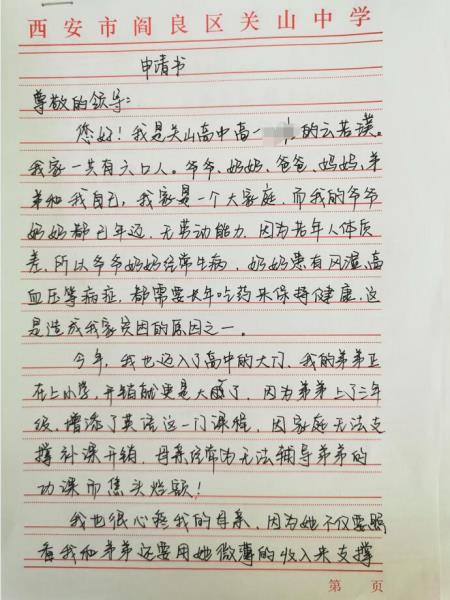 西安市阎良区关山中学
申请书
尊敬的领导:
您好！我是关山高中高一的云若溪。
我家一共有六口人。爷爷、奶奶、爸爸、妈妈、弟
弟和我自己，我家是一个大家庭，而我的爷爷
奶奶都已年迈，无劳动能力，因为老年人体质
差，所以爷爷奶奶经常生病，奶奶患有风湿、高
血压等病症，都需要长年吃药来保持健康，这
是造成我家贫困的原因之一。
今年，我也迈入了高中的大门，我的弟弟正
在上小学，开销就更是大了，因为弟弟上了三年
级，增添了英语这一门课程，因家庭无法支
撑补课开销，母亲经常为无法辅导弟弟的
功课而焦头烂额！
我也很心疼我的母亲，因为她不仅要照
看我和弟弟还要用她微薄的收入来支撑
第 页